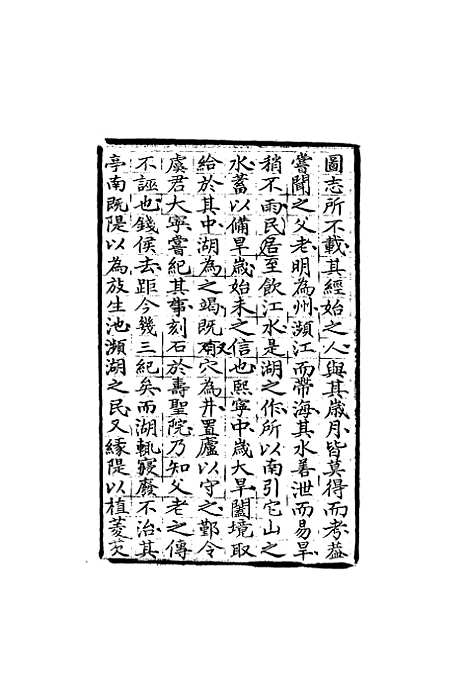 圖志所不載其經始之人與其歲月皆莫得而考葢
嘗聞之父老明為州瀕江而帶海其水善泄而易旱
稍不雨民居至飲江水是湖之作所以南引它山之
水蓄以備旱歲始未之信也熙寧中歲大旱闔境取
給於其中湖為之竭既又穴為井置廬以守之鄞令
虞君大寧嘗紀其事刻石於壽聖院乃知父老之傳
不誣也錢侯去距今幾三紀矣而湖輒寢廢不治其
亭南既隄以為放生池瀕湖之民又緣隄以植菱芡